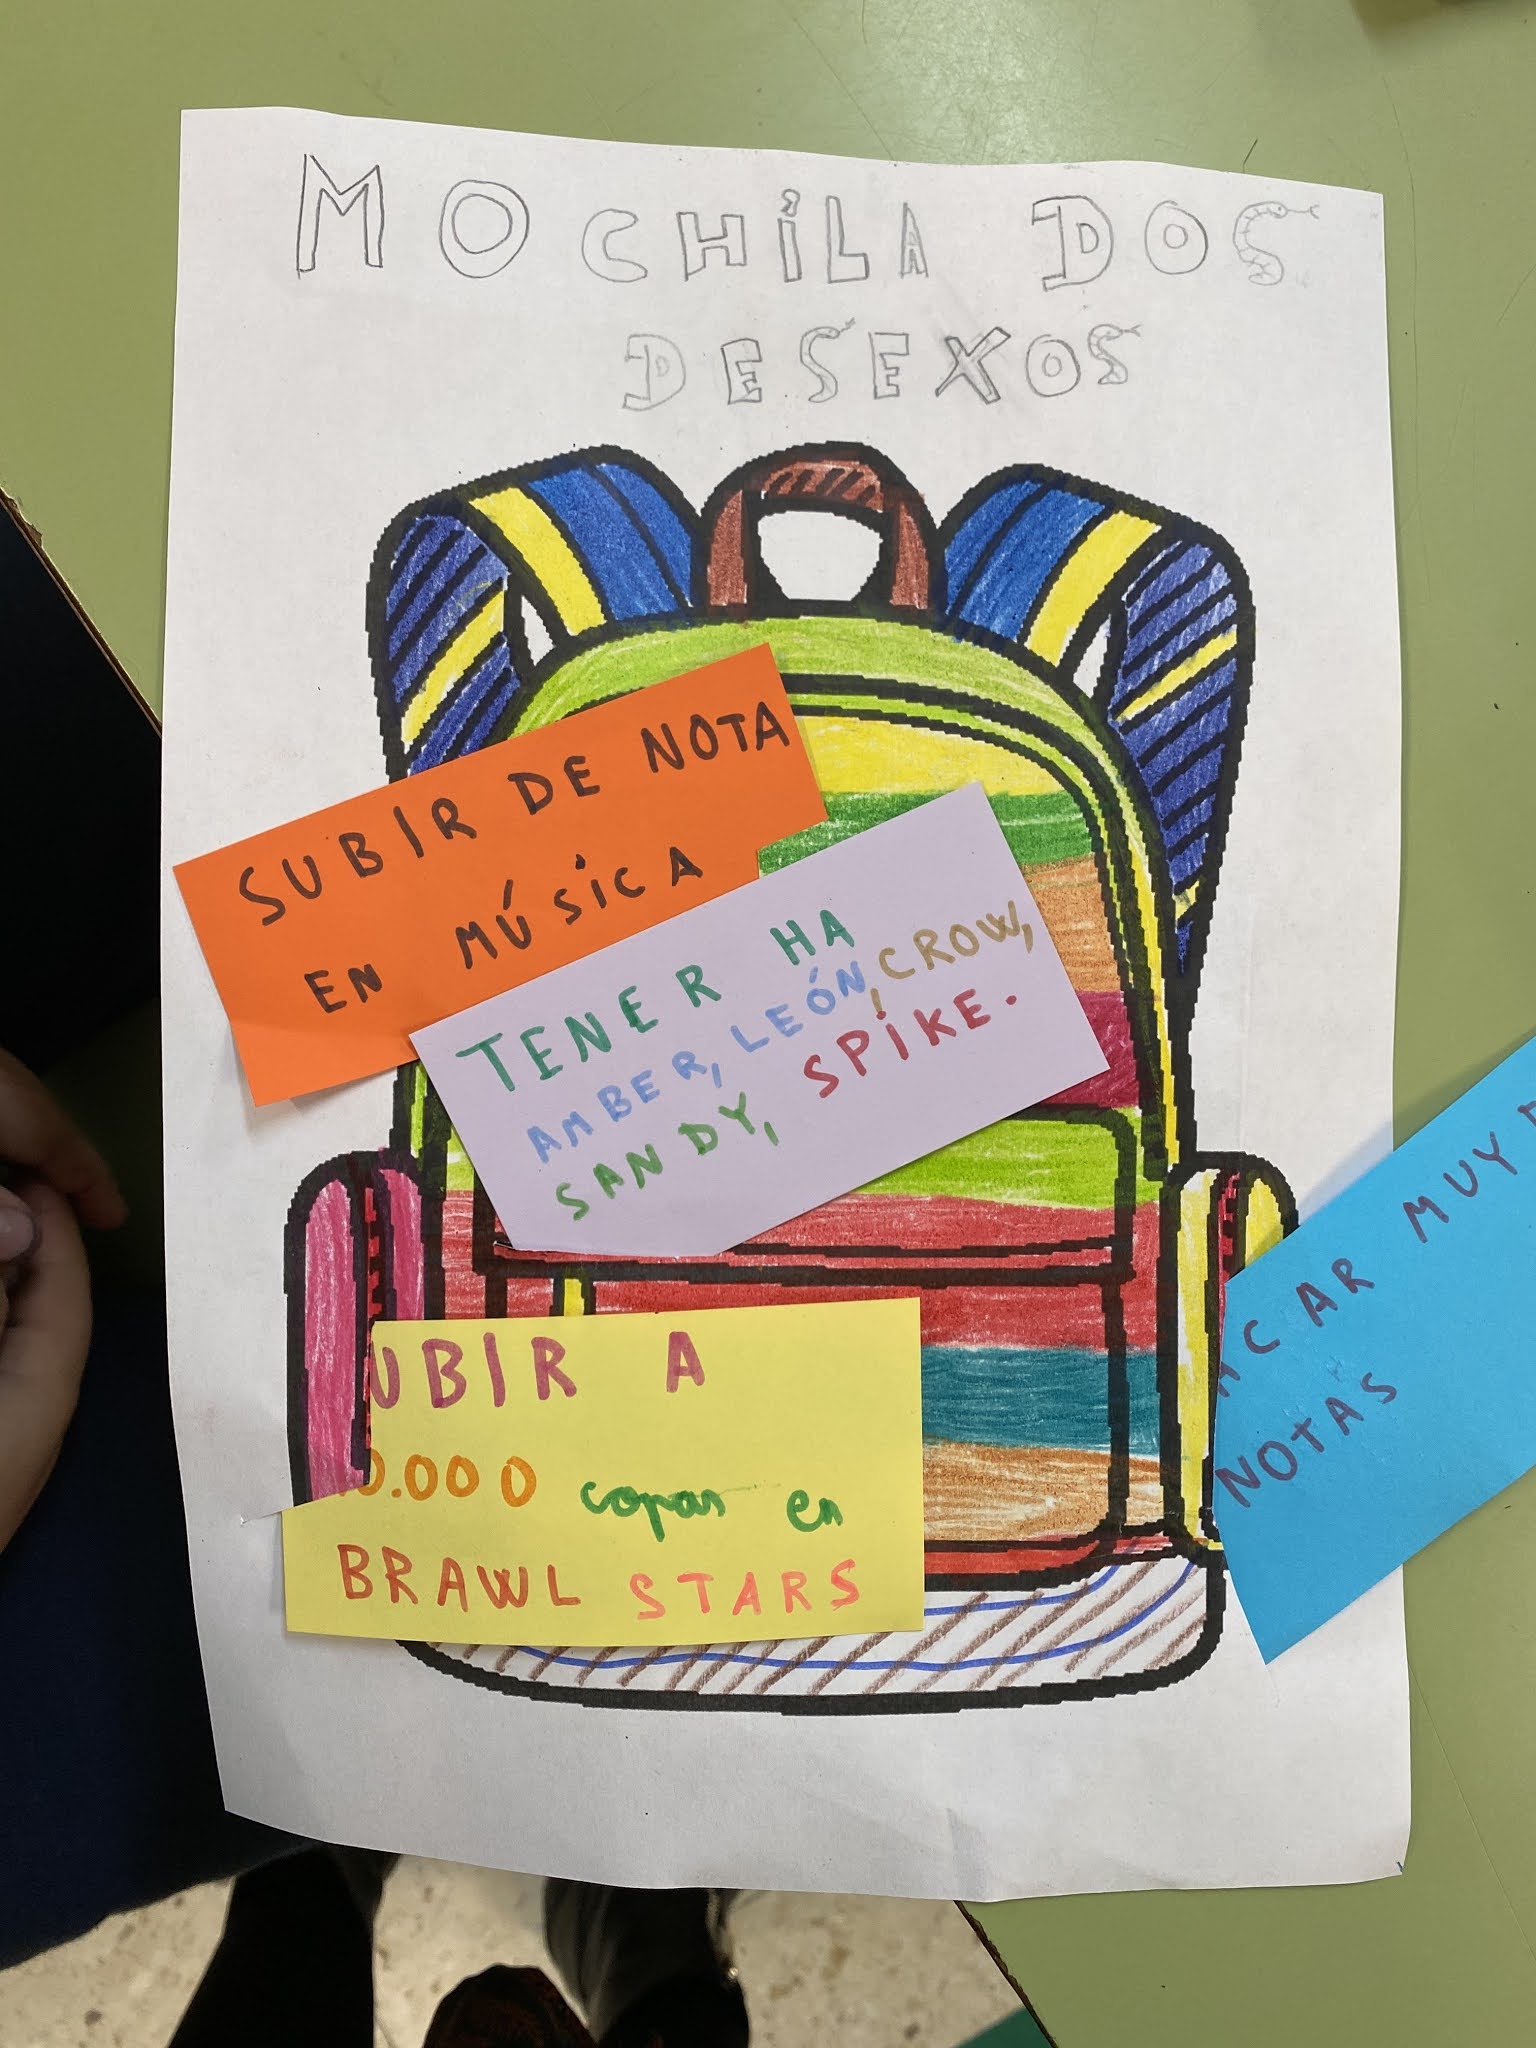 MOCHILA DOS
DESEXOS
SUBIR DE NOTA
EN MÚSICA
TENER HA
AMBER, LEÓN, CROW,
SANDY, SPIKE.
UBIR A
0.000 copas en
BRAWL STARS
CAR MUY
NOTAS